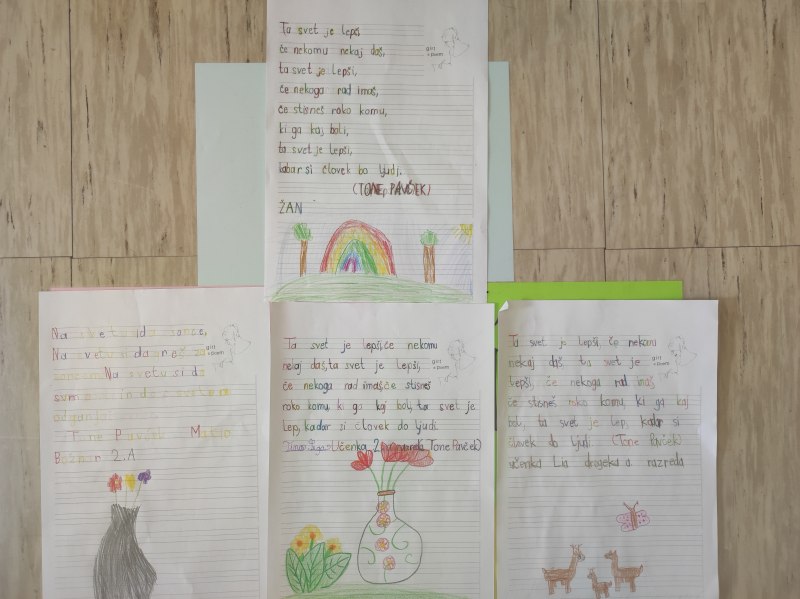 Ta svet je lepši
če nekomu nekaj daš,
ta svet je lepši,
če nekoga rad imaš,
če stisneš roko komu,
ki ga kaj boli,
ta svet je lepši,
kadar si človek bo ljudi.
(TONE PAVČEK)
ŽAN
gift
poem
Na svetu
Na svetu si da greš za
Na svetu si da
Tone
Božnar 2.A
gift
poem
Ta svet je lepši, če nekomu
nekaj daš, ta svet je lepši,
če nekoga rad imaš, če stisneš
roko komu ki ga kaj boli, ta svet je
lep, kadar si človek do ljudi.
Učenka 2. Tone Pavček)
gift
poem
Ta svet je lepši, če nekomu
nekaj daš ta svet je
lepši, če nekoga rad imaš
če stisneš roko komu ki ga kaj
boli, ta svet je lep, kadar si
človek do ljudi (Tone Pavček)
učenka Lia drugeka a razreda
gift
poem